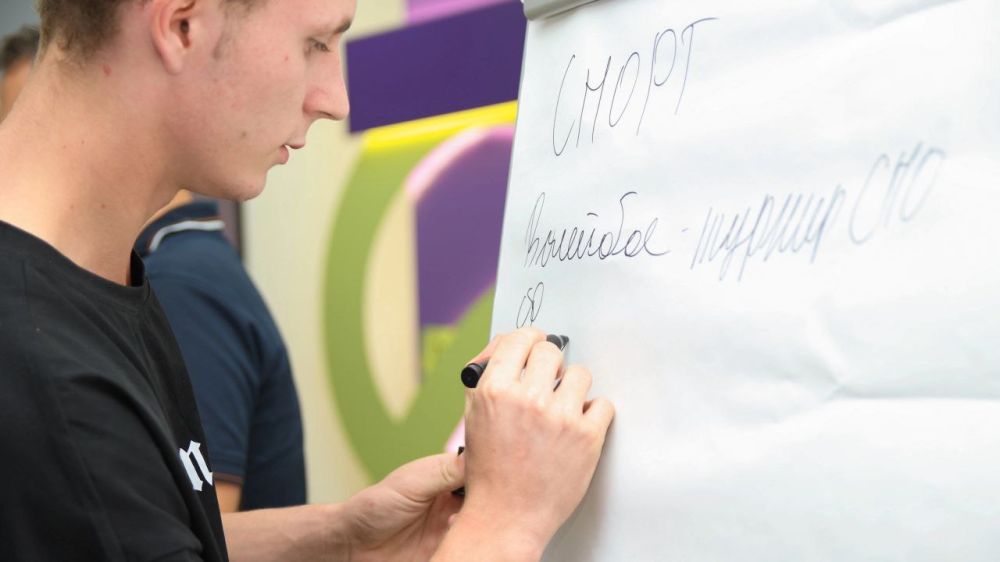 СПОРТ
Волейбол - турнир СНО